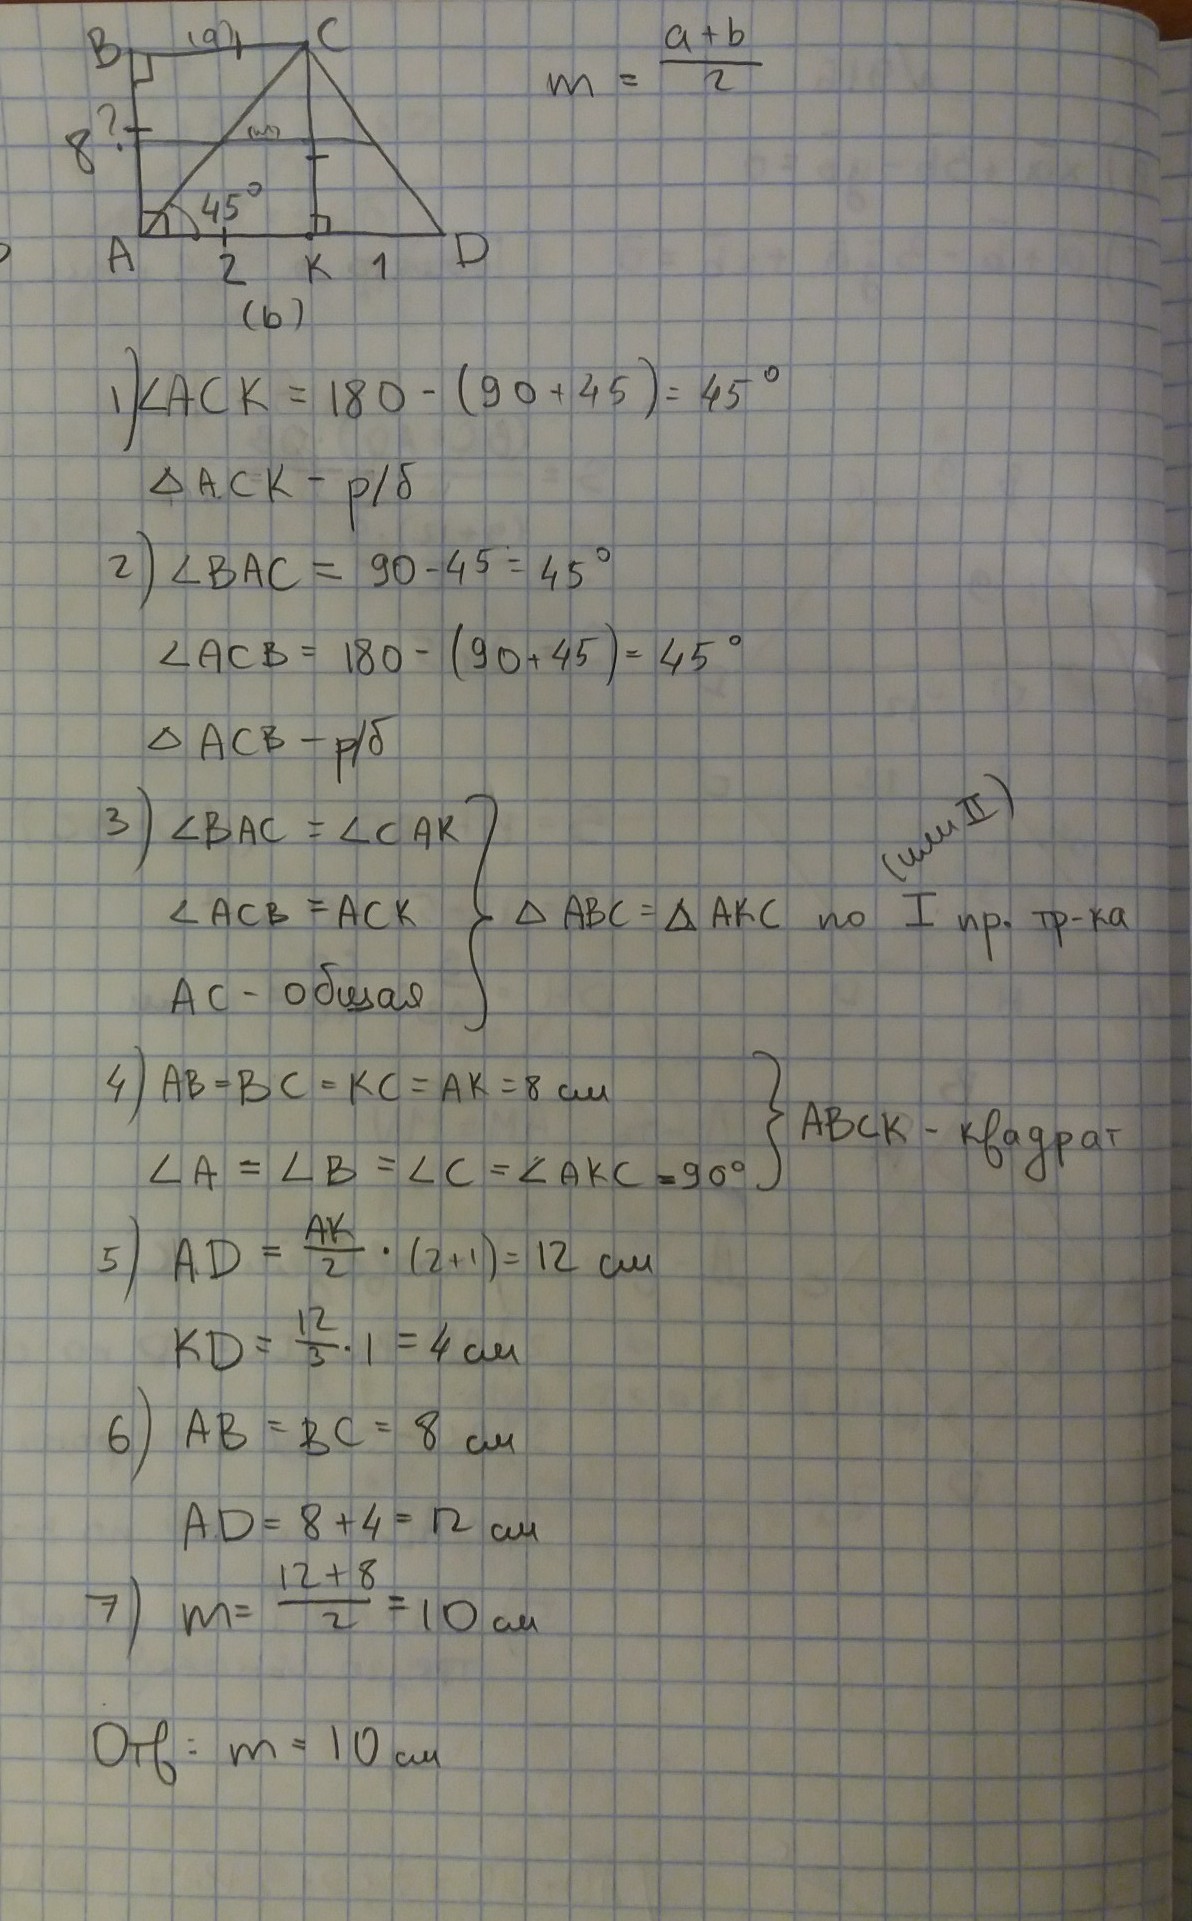 B (a) C
m = a+b / 2
8 ? (m)
45°
A 2 K 1 D
(b)
1) ∠ACK = 180 - (90 + 45) = 45°
△ ACK - р/б
2) ∠BAC = 90 - 45 = 45°
∠ACB = 180 - (90 + 45) = 45°
△ ACB - р/б
3) ∠BAC = ∠CAK
(или II)
∠ACB = ACK } △ ABC = △ AKC по I пр. тр-ка
AC - общая
4) AB = BC = KC = AK = 8 см
} ABCK - квадрат
∠A = ∠B = ∠C = ∠AKC = 90°
5) AD = AK/2 · (2+1) = 12 см
KD = 12/3 · 1 = 4 см
6) AB = BC = 8 см
AD = 8 + 4 = 12 см
7) m = 12+8 / 2 = 10 см
Отв: m = 10 см